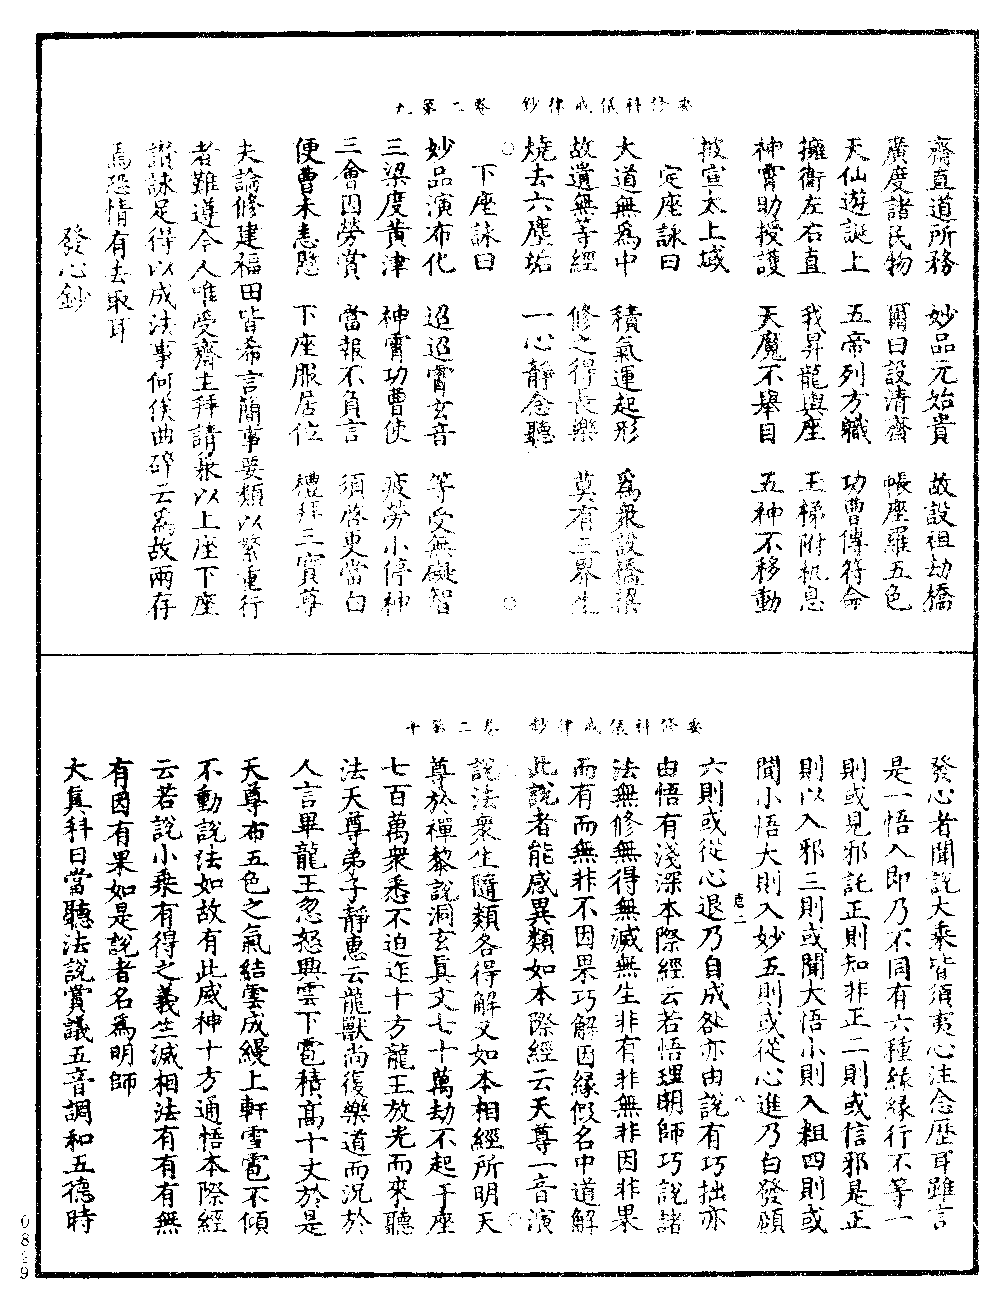 要修科儀戒律鈔 卷二 第九
齋直道所務 妙品元始貴 故設祖劫橋
廣度諸民物 爾曰設清齋 帳座羅五色
天仙遊誕上 五帝列方軄 功曹傳符命
擁衛左右直 我昇龍與座 玉梯附机息
神霄助授護 天魔不舉目 五神不移動
披宣太上域
定座詠曰
大道無為中 積氣運起形 為衆設橋梁
故遺無等經 修之得長樂 莫有三界生
燒去六塵垢 一心靜念聽
下座詠曰
妙品演布化 迢迢霄玄音 等受無礙智
三梁度黄津 神霄功曹使 疲勞小停神
三會因勞賞 當報不負言 須啓更當白
便曹未悉懸 下座服居位 禮拜三寶尊
夫論修建福田皆希言簡事要類以繁重行
者雖遵今人唯受齋主拜請衆以上座下座
讃詠足得以成法事何俟曲碎云為故兩存
焉恐情有去取耳
發心鈔
要修科儀戒律鈔 卷二 第十
發心者聞說大乘皆須夷心注念歷耳雖言
是一悟入即乃不同有六種緣緣行不等一
則或見邪託正則知非正二則或信邪是正
則以入邪三則或聞大悟小則入粗四則或
聞小悟大則入妙五則或從心進乃白發願
六則或從心退乃自成咎亦由說有巧拙亦
由悟有淺深本際經云若悟理明師巧說諸
法無修無得無滅無生非有非無非因非果
而有而無非不因果巧解因緣假名中道解
此說者能感異類如本際經云天尊一音演
說法衆生隨類各得解又如本相經所明天
尊於禪黎說洞玄真文七十萬劫不起于座
七百萬衆悉不迫迮十方龍王放光而來聽
法天尊弟子靜惠云龍獸尚復樂道而況於
人言畢龍王忽怒興雲下雹積高十丈於是
天尊布五色之氣結雲成縵上軒雪雹不傾
不動說法如故有此威神十方通悟本際經
云若說小乘有得之義生滅相法有有有無
有因有果如是說者名為明師
大真科曰當聽法說賞議五音調和五德時